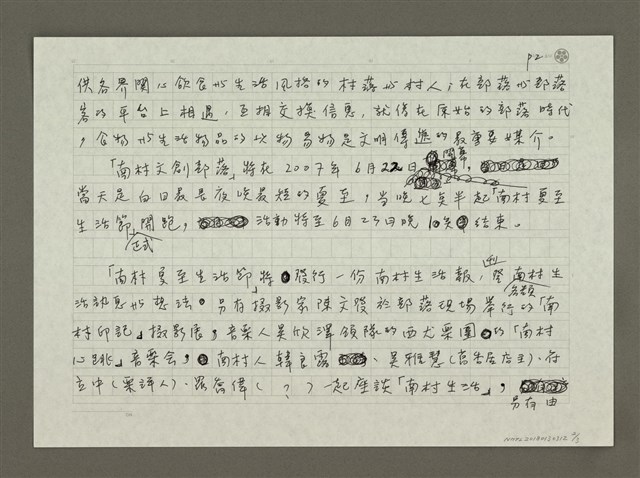 P2
供各界關心飲食與生活風格的村落與村人;在部落與部落
客的平台上相遇,互相交換信息,就像在原始的部落時代
,食物與生活物品的以物易物是文明傳遞的最重要媒介。
「南村文創部落」將在2007年6月22日開幕,
當天是白日最長夜晚最短的夏至,當晚七點半起「南村夏至
生活節」正式開跑,活動將至6月23日晚10點結束。
「南村夏至生活節」將發行一份南村生活報,登南村生
活訊息與想法。另有攝影家陳文發於部落現場舉行的「南
村印記」攝影展,音樂人吳欣澤領隊的西尤樂團的「南村
心跳」音樂會,南村人韓良露、吳雅慧(店主)、符
立中(樂評人)、偉(?)一起座談「南村生活」,
另有由
N002201801303312 2/3